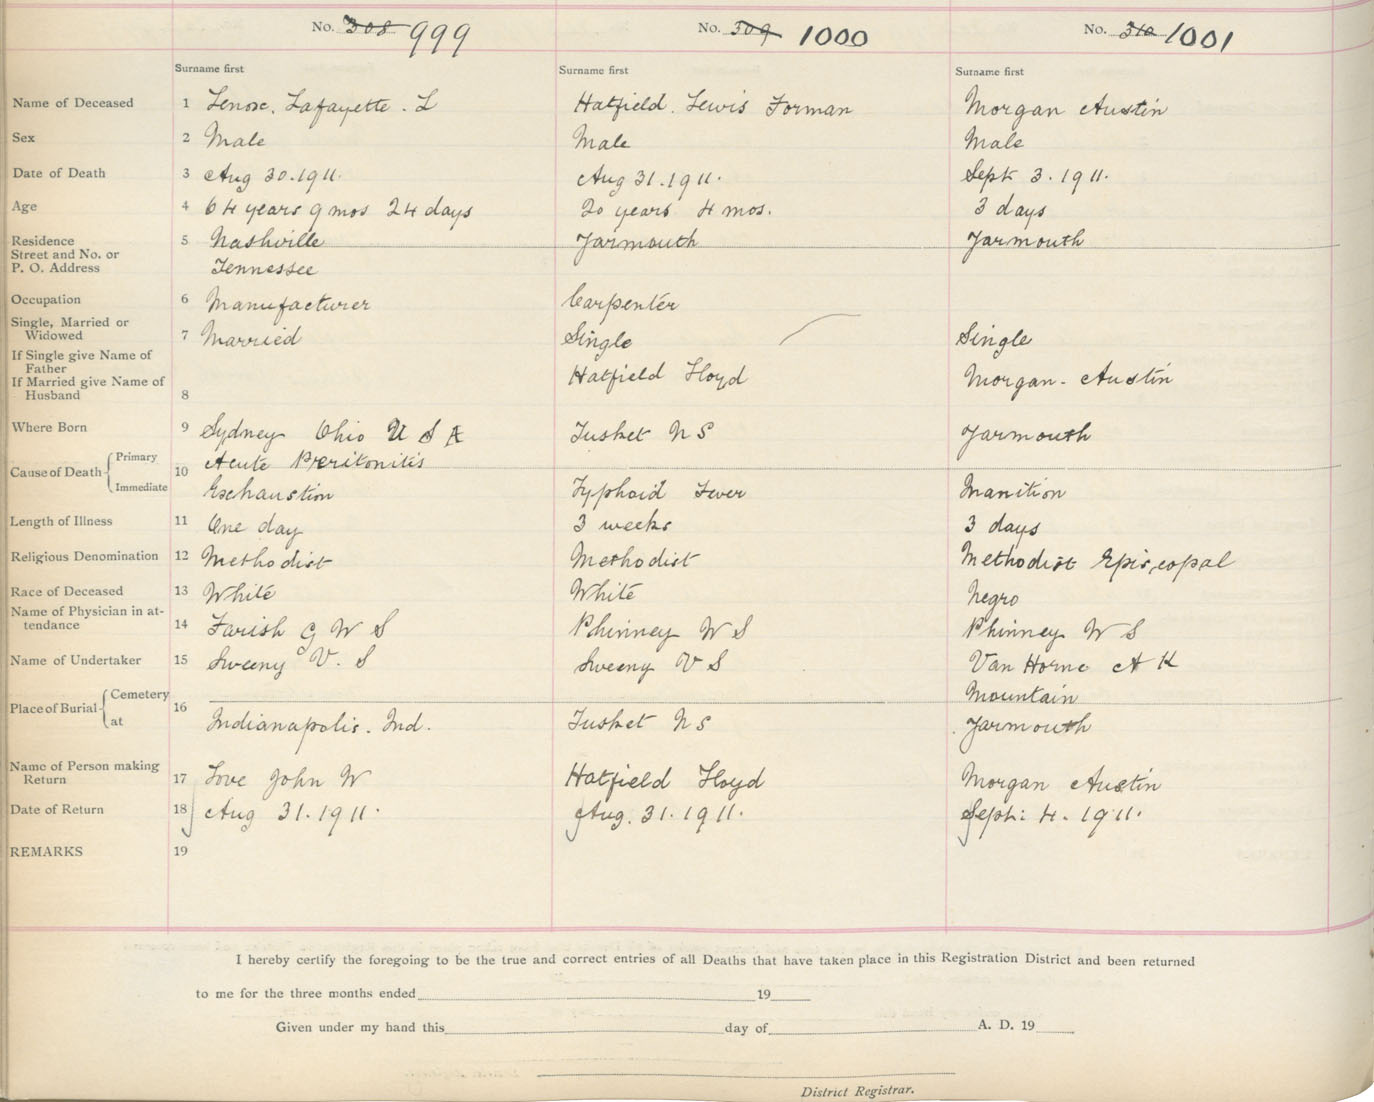 No. 308 999 No. 309 1000 No. 310 1001
Surname first Surname first Surname first
Name of Deceased 1 Lenox, Lafayette. L Hatfield. Lewis Forman Morgan Austin
Sex 2 Male Male Male
Date of Death 3 Aug 30.1911. Aug 31.1911. Sept 3.1911.
Age 4 64 years 9 mos 24 days 20 years 4 mos. 3 days
Residence 5 Nashville Yarmouth Yarmouth
Street and No. or
P. O. Address Tennessee
Occupation 6 Manufacturer Carpenter
Single, Married or
Widowed 7 Married Single Single
If Single give Name of
Father Hatfield Floyd Morgan - Austin
If Married give Name of
Husband 8
Where Born 9 Sydney Ohio U S A Tusket N S Yarmouth
Cause of Death Primary 10 Acute Peritonitis
Immediate Exhaustion Typhoid Fever Inanition
Length of Illness 11 One day 3 weeks 3 days
Religious Denomination 12 Methodist Methodist Methodist Episcopal
Race of Deceased 13 White White Negro
Name of Physician in at-
tendance 14 Farish G W S Phinney W S Phinney W S
Name of Undertaker 15 Sweeny V. S Sweeny V S Van Horne A K
Place of Burial Cemetery 16 Mountain
at Indianapolis. Ind. Tusket N S Yarmouth
Name of Person making
Return 17 Love John W Hatfield Floyd Morgan Austin
Date of Return 18 Aug 31.1911. Aug. 31.1911. Sept: 4.1911.
REMARKS 19
I hereby certify the foregoing to be the true and correct entries of all Deaths that have taken place in this Registration District and been returned
to me for the three months ended 19
Given under my hand this day of A. D. 19
District Registrar.